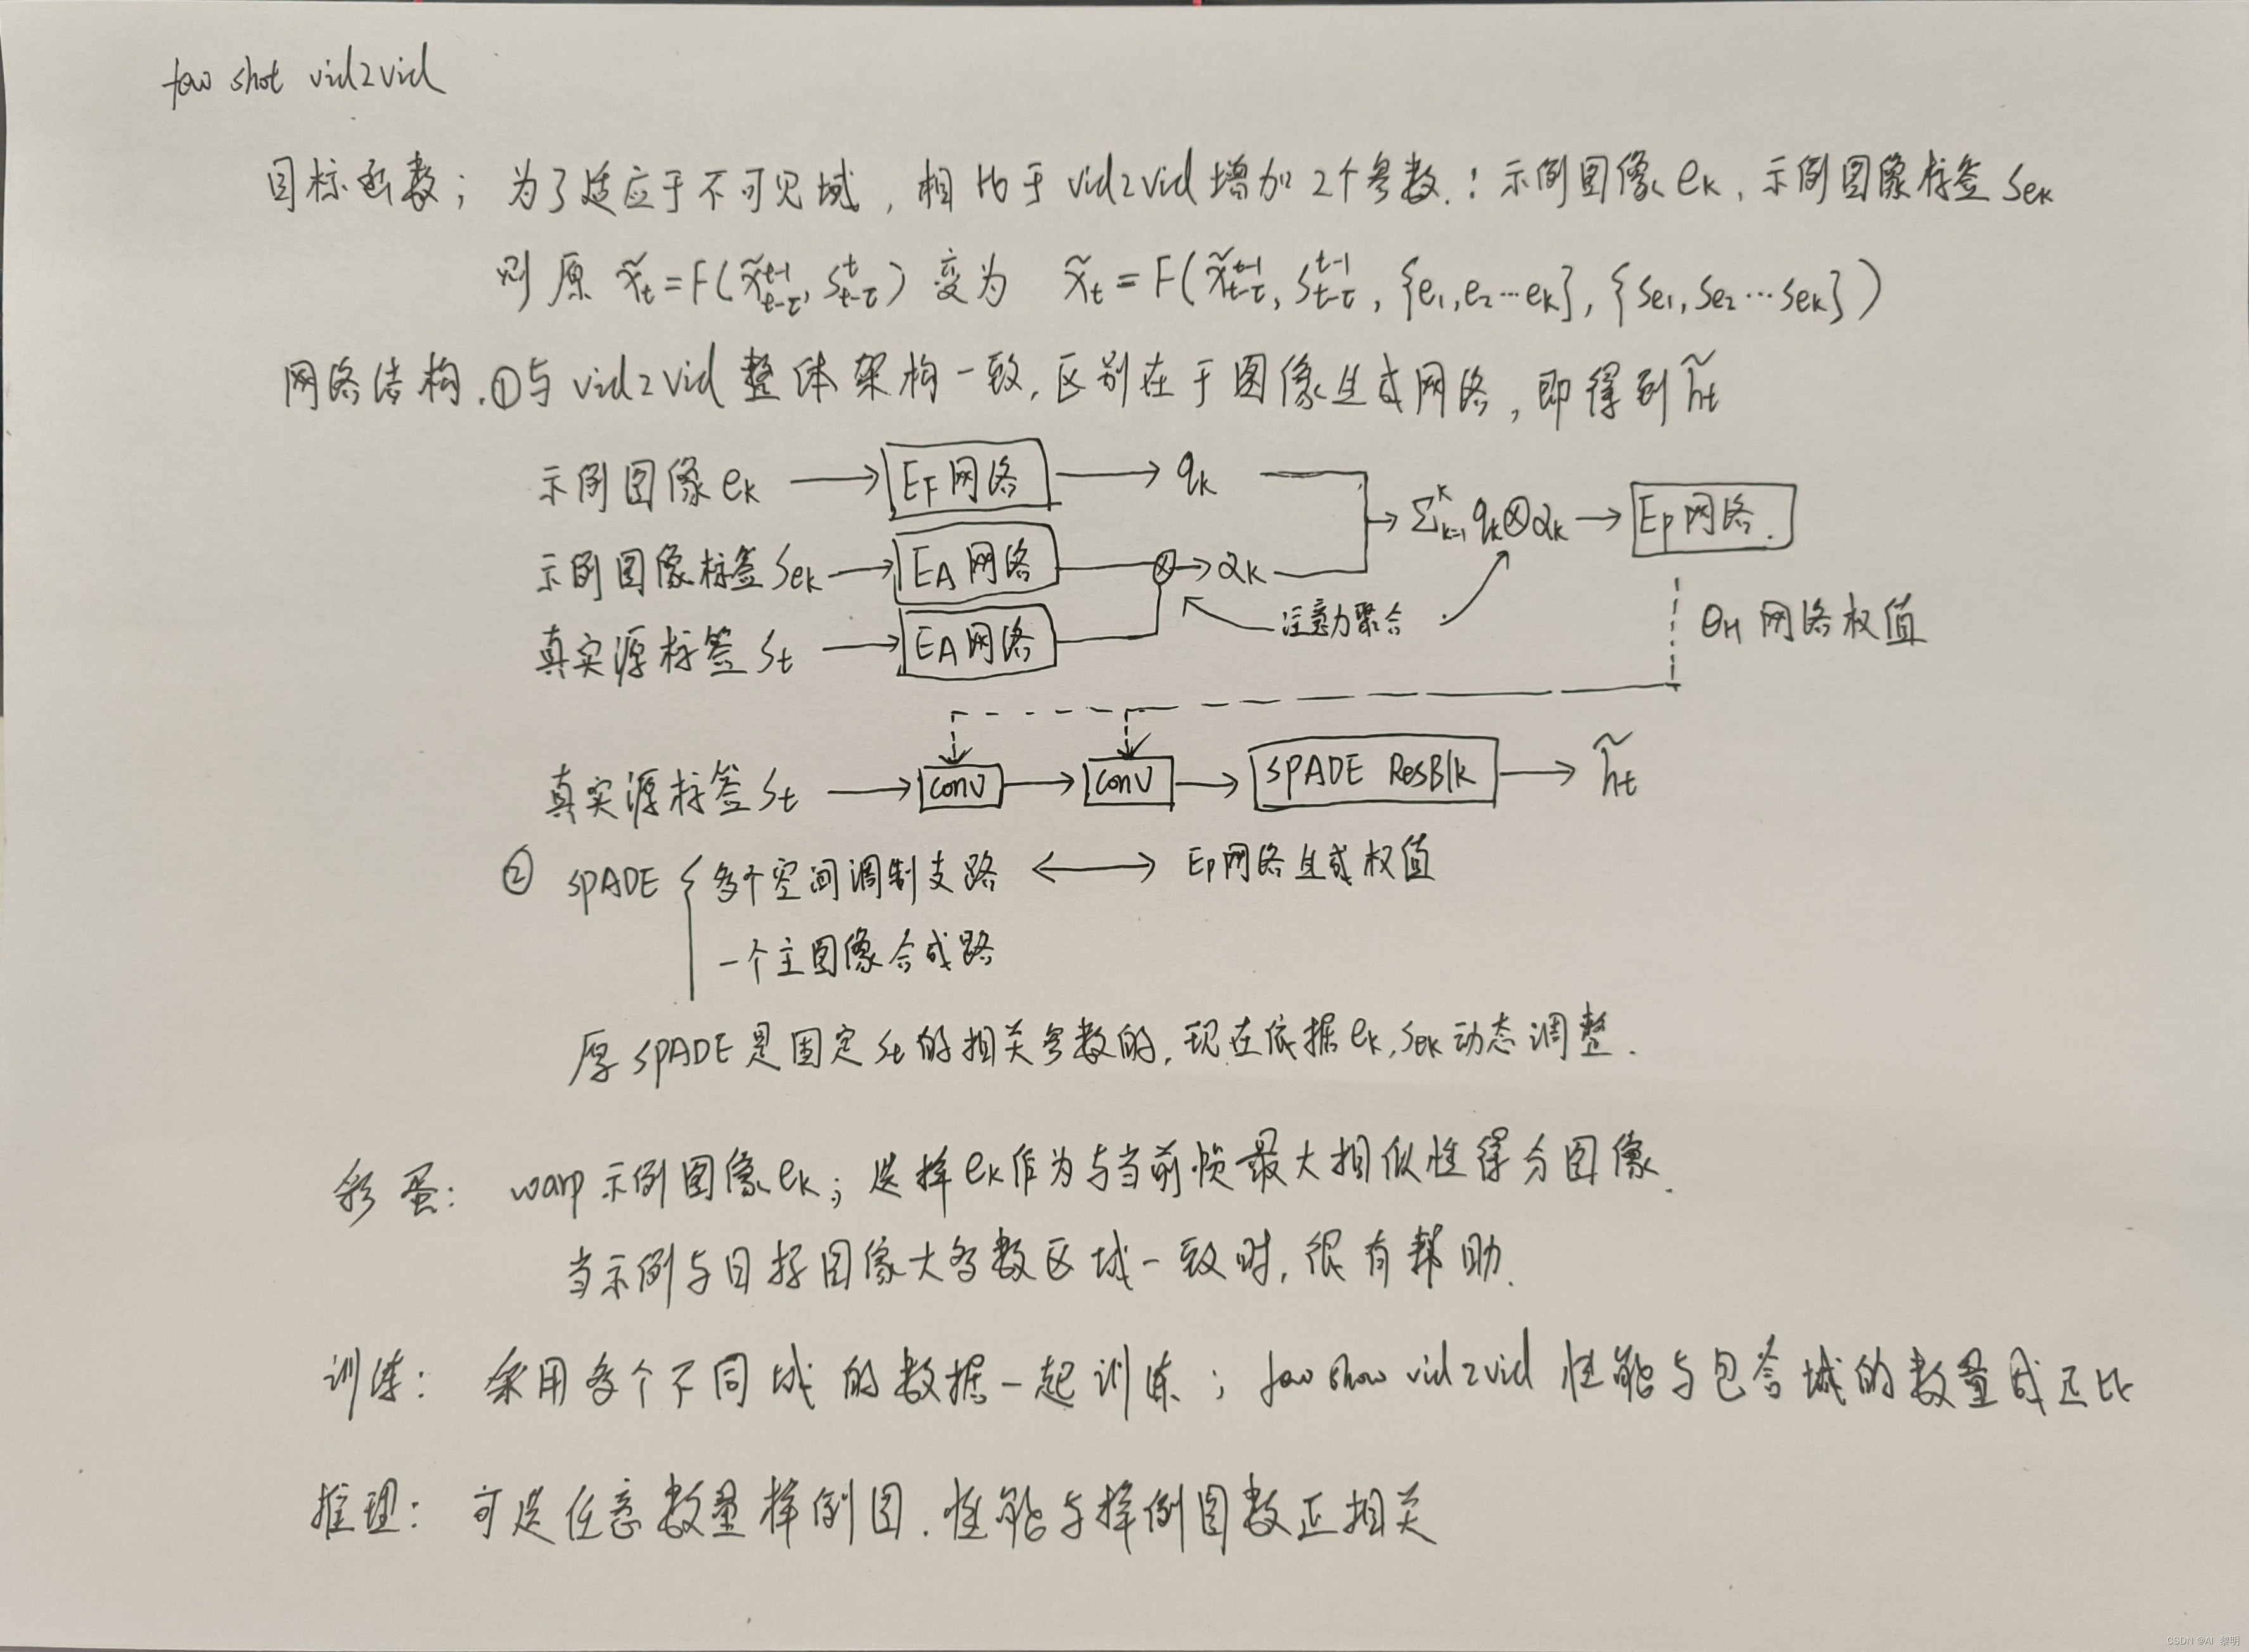 few shot vid2vid
目标函数；为了适应于不可见域，相比于vid2vid增加2个参数：示例图像eₖ，示例图像标签Seₖ
则原 x̃ₜ=F(x̃ₜ₋τᵗ⁻¹, Sₜ₋τᵗ) 变为 x̃ₜ=F(x̃ₜ₋τᵗ⁻¹, Sₜ₋τᵗ⁻¹, {e₁,e₂…eₖ}, {Se₁,Se₂…Seₖ})
网络结构.①与vid2vid整体架构一致,区别在于图像生成网络，即得到h̃ₜ
示例图像eₖ → E_F网络 → qₖ
Σₖ₌₁ᴷ qₖ⊗αₖ → E_P网络.
示例图像标签Seₖ → E_A网络 ⊗→ αₖ
注意力聚合
θ_H 网络权值
真实源标签Sₜ → E_A网络
真实源标签Sₜ → conv → conv → SPADE ResBlk → h̃ₜ
② SPADE { 多个空间调制支路 ↔ E_P网络生成权值
一个主图像合成路
原SPADE是固定Sₜ的相关参数的,现在依据eₖ,Seₖ动态调整.
彩蛋：warp示例图像eₖ；选择eₖ作为与当前帧最大相似性得分图像.
当示例与目标图像大多数区域一致时,很有帮助.
训练：采用多个不同域的数据一起训练；few show vid2vid 性能与包含域的数量成正比
推理：可选任意数量样例图.性能与样例图数正相关
CSDN @AI 黎明